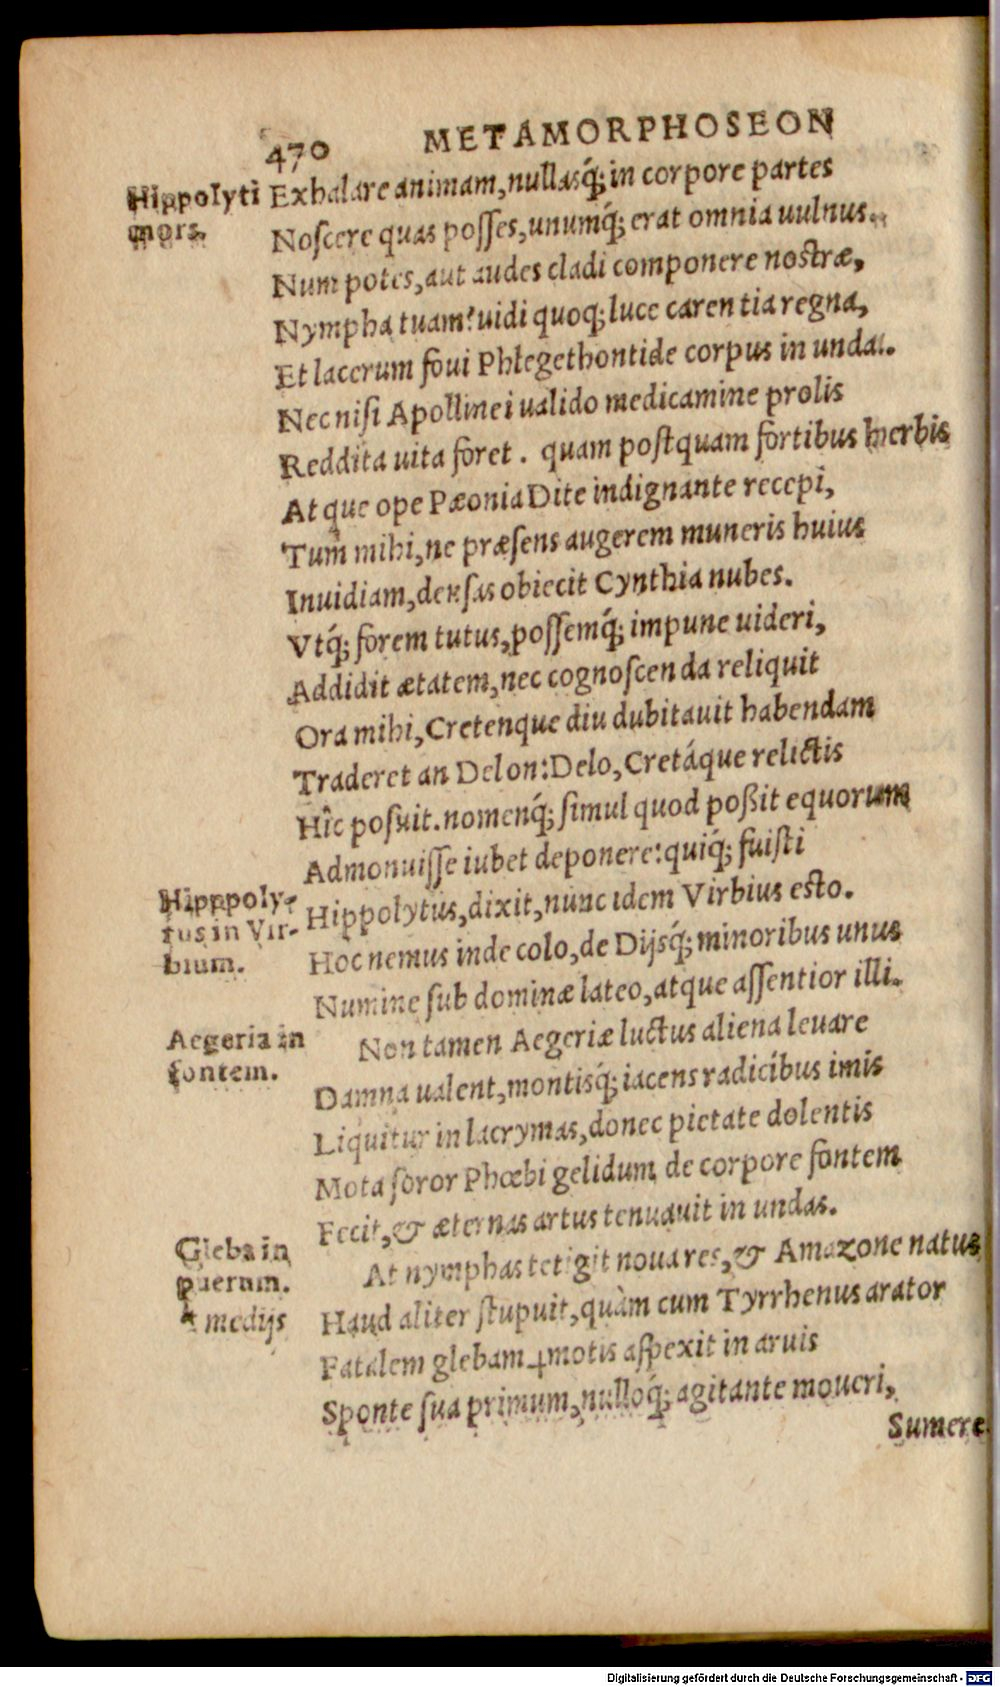 470 METAMORPHOSEON
Hippolyti
mors.
Exhalare animam, nullasq́; in corpore partes
Noſcere quas poſſes, unumq́; erat omnia uulnus.
Num potes, aut audes cladi componere nostræ,
Nympha tuam? uidi quoq; luce carentia regna,
Et lacerum foui Phlegethontide corpus in unda.
Nec niſi Apollinei ualido medicamine prolis
Reddita uita foret. quam poſtquam fortibus herbis
Atque ope Pæonia Dite indignante recepi,
Tum mihi, ne præſens augerem muneris huius
Inuidiam, denſas obiecit Cynthia nubes.
Vtq́; forem tutus, poſſemq́; impune uideri,
Addidit ætatem, nec cognoſcenda reliquit
Ora mihi, Cretenque diu dubitauit habendam
Traderet an Delon: Delo, Cretáque relictis
Hîc poſuit. nomenq́; ſimul quod poßit equorum
Admonuiſſe iubet deponere: quiq́; fuiſti
Hipppoly-
tus in Vir-
bium.
Hippolytus, dixit, nunc idem Virbius esto.
Hoc nemus inde colo, de Dijsq́; minoribus unus
Numine ſub dominæ lateo, atque aſſentior illi.
Aegeria in
fontem.
Non tamen Aegeriæ luctus aliena leuare
Damna ualent, montisq́; iacens radicibus imis
Liquitur in lacrymas, donec pietate dolentis
Mota ſoror Phœbi gelidum de corpore fontem
Fecit, & æternas artus tenuauit in undas.
Gleba in
puerum.
At nymphas tetigit noua res, & Amazone natus
Haud aliter ſtupuit, quàm cum Tyrrhenus arator
medijs
Fatalem glebam ┼motis aſpexit in aruis
Sponte ſua primum, nulloq́; agitante moueri,
Sumere
Digitalisierung gefördert durch die Deutsche Forschungsgemeinschaft - DFG